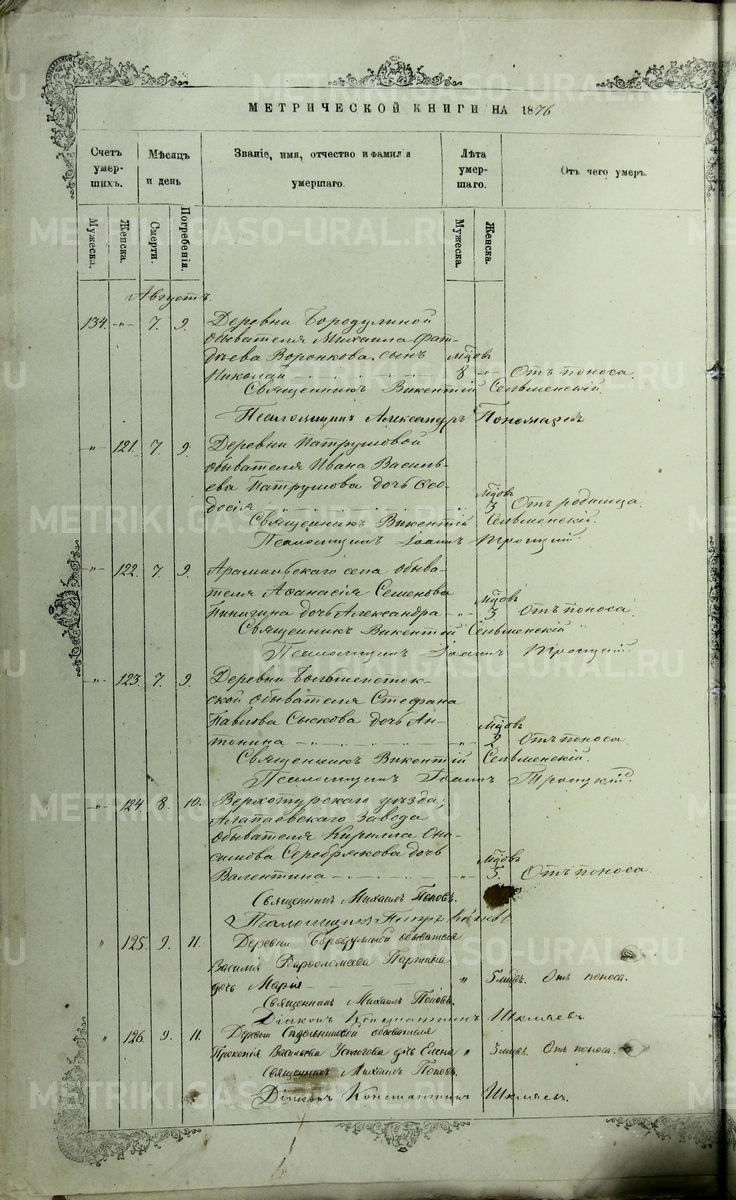 МЕТРИЧЕСКОЙ КНИГИ НА 1876
Счетъ умершихъ.
Мѣсяцъ и день
Званіе, имя, отчество и фамилія умершаго.
Лѣта умершаго.
Отъ чего умеръ.
Мужеска.
Женска.
Смерти.
Погребенія.
Мужеска.
Женска.
Августъ.
134. -„- 7. 9. Деревни Бородулиной
обывателя Михаила Фад-
дѣева Воронкова сынъ мцовъ
Николай 8 -„- Отъ поноса
Священникъ Викентій Сельменскій
Псаломщикъ Александръ Пономаревъ
-„- 121. 7. 9. Деревни Патрушовой
обывателя Ивана Василь-
ева Патрушова дочь Ѳео- мцовъ
досія 3 Отъ родимца.
Священникъ Викентій Сельменскій.
Псаломщикъ Іоаннъ Троицкій.
-„- 122. 7. 9. Арамильскаго села обыва-
теля Аѳанасія Семенова мцовъ
дочь Александра -„- 3 Отъ поноса
Священникъ Викентій Сельменскій
Псаломщикъ Іоаннъ Троицкій.
-„- 123. 7. 9. Деревни
ской обывателя Стефана
Павлова Сыскова дочь Ан- мцовъ
тонина -„- 2 Отъ поноса
Священникъ Викентій Сельменскій.
Псаломщикъ Іоаннъ Троицкій.
-„- 124. 8. 10. Верхотурскаго уѣзда,
Алапаевскаго завода
обывателя Кирилла Они-
симова Серебрякова дочь мцовъ
Валентина „ 5. Отъ поноса
Священникъ Михаилъ Поповъ.
Псаломщикъ Петръ
„ 125. 9. 11. Деревни Бородулиной обывателя
Василія Варѳоломеева
дочь Марія „ 5 мцвъ. Отъ поноса.
Священникъ Михаилъ Поповъ.
Діаконъ Константинъ Шкляевъ.
„ 126. 9. 11. Деревни обывателя
Прокопія Васильева дочь Елена „ 3 мцвъ. Отъ поноса.
Священникъ Михаилъ Поповъ.
Діаконъ Константинъ Шкляевъ.
METRIKI.GASO-URAL.RU